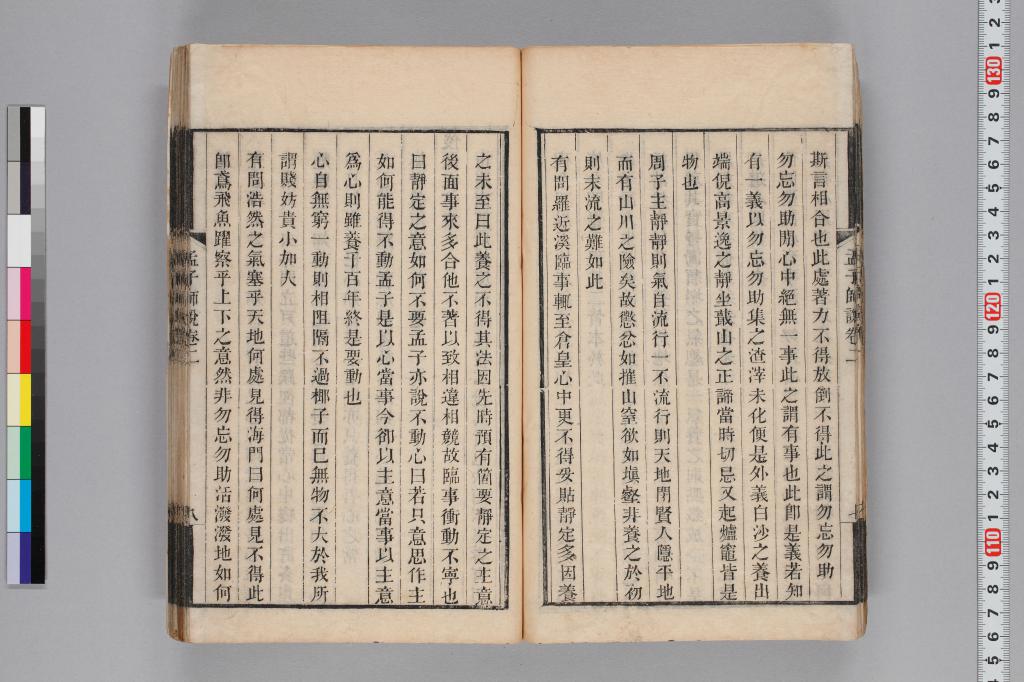 斯言相合也此處著力不得放倒不得此之謂勿忘勿助
勿忘勿助閒心中絕無一事此之謂有事也此卽是義若知
有一義以勿忘勿助集之渣滓未化便是外義白沙之養出
端倪高景逸之靜坐蕺山之正諦當時切忌又起爐竈皆是
物也
周子主靜靜則氣自流行一不流行則天地閉賢人隱平地
而有山川之險矣故懲忿如摧山窒慾如塡壑非養之於初
則末流之難如此
有問羅近溪臨事輒至倉皇心中更不得妥貼靜定多因養
之未至曰此養之不得其法因先時預有箇要靜定之主意
後面事來多合他不著以致相違相競故臨事衝動不寧也
曰靜定之意如何不要孟子亦說不動心曰若只意思作主
如何能得不動孟子是以心當事今卻以主意當事以主意
爲心則雖養于百年終是要動也
心自無窮一動則相阻隔不過椰子而已無物不大於我所
謂賤妨貴小加大
有問浩然之氣塞乎天地何處見得海門曰何處見不得此
卽鳶飛魚躍察乎上下之意然非勿忘勿助活潑潑地如何
孟子師說卷二
七
孟子師說卷二
八
130
120
110